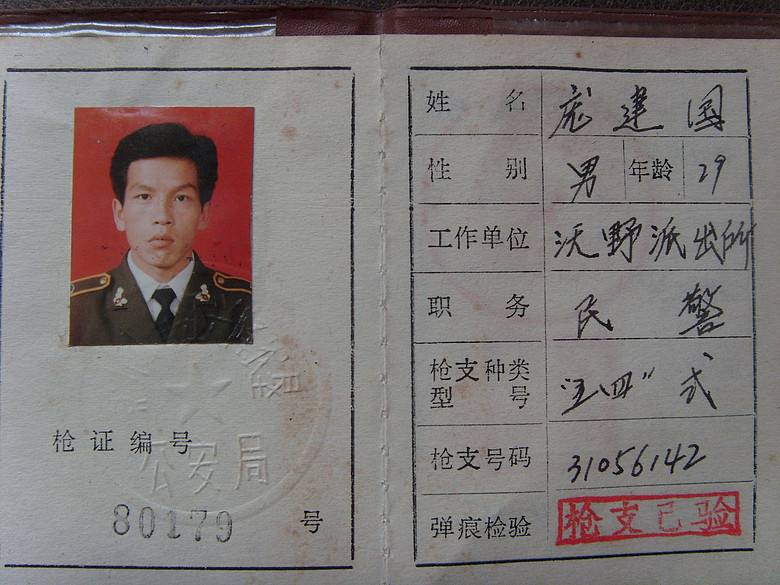 枪证编号
公安局
80179 号
姓名 庞建国
性别 男 年龄 29
工作单位 沃野派出所
职务 民警
枪支种类
型号 "五四"式
枪支号码 31056142
弹痕检验 枪支已验